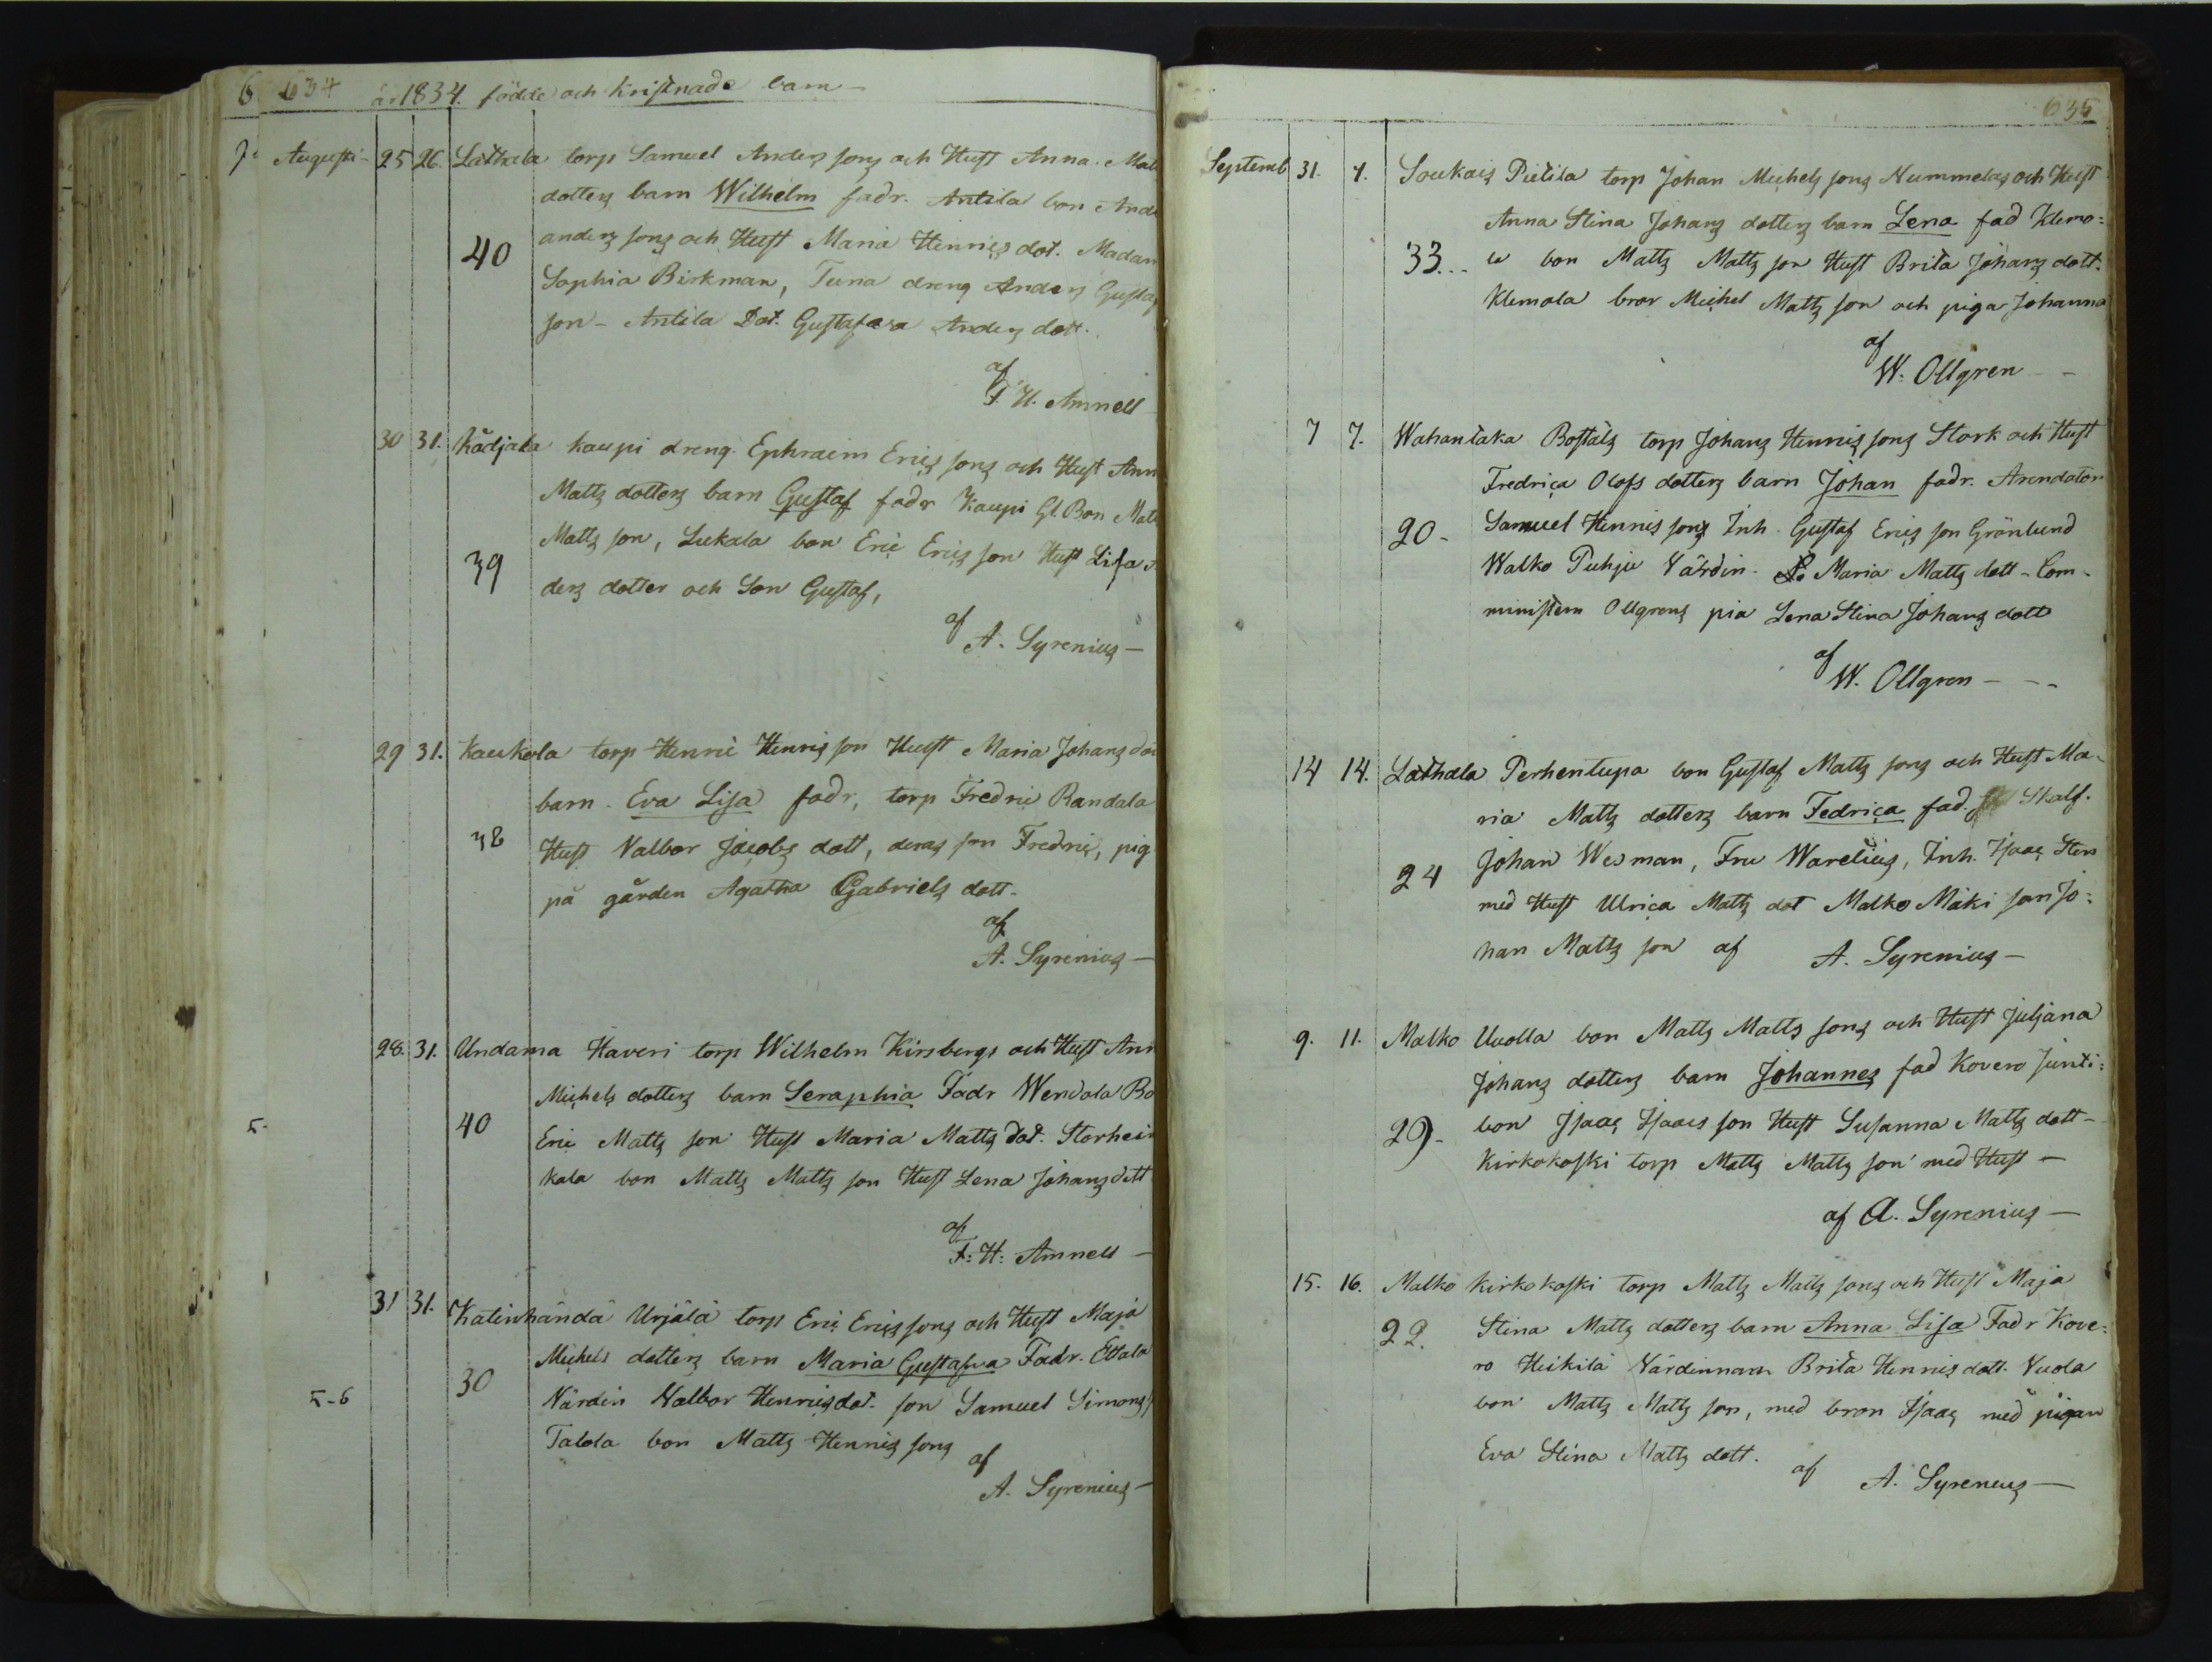 634 år 1834. födde och Kristnade barn -
Augusti - 25 26. Ladhala torp Samuel Anders sons och Hust Anna
dotters barn Wilhelm fadr. Antila bon
40 anders sons och Hust Maria Henrics dot. Madam
Sophia Birkman, Tuna dreng Anders Gustaf
son - Antila Dot. Gustafava Anders dott.
af
F. H. Amnell
30 31. Kådjala kaupi dreng Ephraim Erics sons och Hust Ann
Matts dotters barn Gustaf fadr Kaupi Gl. Bon
39 Matts son, Lukala bon Eric Erics son Hust Lisa
ders dotter och Son Gustaf,
af
A. Syrenius -
29 31. Kaukola torp Henric Henrics son Hust Maria Johans
barn. Eva Lisa fadr, torp Fredric Randala
38 Hust Valbor Jacobs dott, deras son Fredric, pig
på gården Agatha Gabriels dott.
af
A. Syrenius -
28. 31. Undama Haveri torp Wilhelm Kirsbergs och Hust Ann
Michels dotters barn Seraphia Fadr Wendala Bo
5. 40 Eric Matts son Hust Maria Matts dot. Storhei
kala bon Matts Matts son Hust Lena Johans dott
af
F: H: Amnell -
31 31. Katinhändä Urjälä torp Eric Erics sons och Hust Maja
Michels dotters barn Maria Gustafva Fadr.
5-6 30 Värdin Valbor Henricsdot. son Samuel Simons
Talola bon Matts Henrics sons
af
A. Syrenius -
635
Septemb 31. 7. Soukais Pietila torp Johan Michels sons Nummelas och Hust
Anna Stina Johans dotters barn Lena fad Klemo:
33... la bon Matts Matts son Hust Brita Johans dott.
Klemola bror Michel Matts son och piga Johanna
af
W. Ollgren - -
7 7. Wahantaka Boställs torp Johans Henrics sons Stark och Hust
Fredrica Olofs dotters barn Johan fadr. Arendatorn
20 - Samuel Henrics sons Inh. Gustaf Erics son Grönlund
Walko Puhju Värdin. Maria Matts dott - Com-
ministern Ollgrens pia Lena Stina Johans dott
af
W. Ollgren - - -
14 14. Ladhala Perhentupa bon Gustaf Matts sons och Hust Ma-
ria Matts dotters barn Fedrica fad. Skalf.
24 Johan Wesman, Fru Warelius, Inh. Isaac Sten
med Hust Ulrica Matts dot Malko Mäki son Jo:
han Matts son af A. Syrenius -
9. 11. Malko Uuolla bon Matts Matts sons och Hust Juljana
Johans dotters barn Johannes fad Kovero Junti:
29 - bon Isaac Isaacs son Hust Susanna Matts dott -
Kirkokoski torp Matts Matts son med Hust -
af A. Syrenius -
15. 16. Malko Kirkokoski torp Matts Matts sons och Hust Maja
22. Stina Matts dotters barn Anna Lisa Fadr Kove:
ro Heikilä Värdinnan Brita Henrics dott. Vuola
bon Matts Matts son, med bron Isaac med pigan
Eva Stina Matts dott. af A. Syrenius -